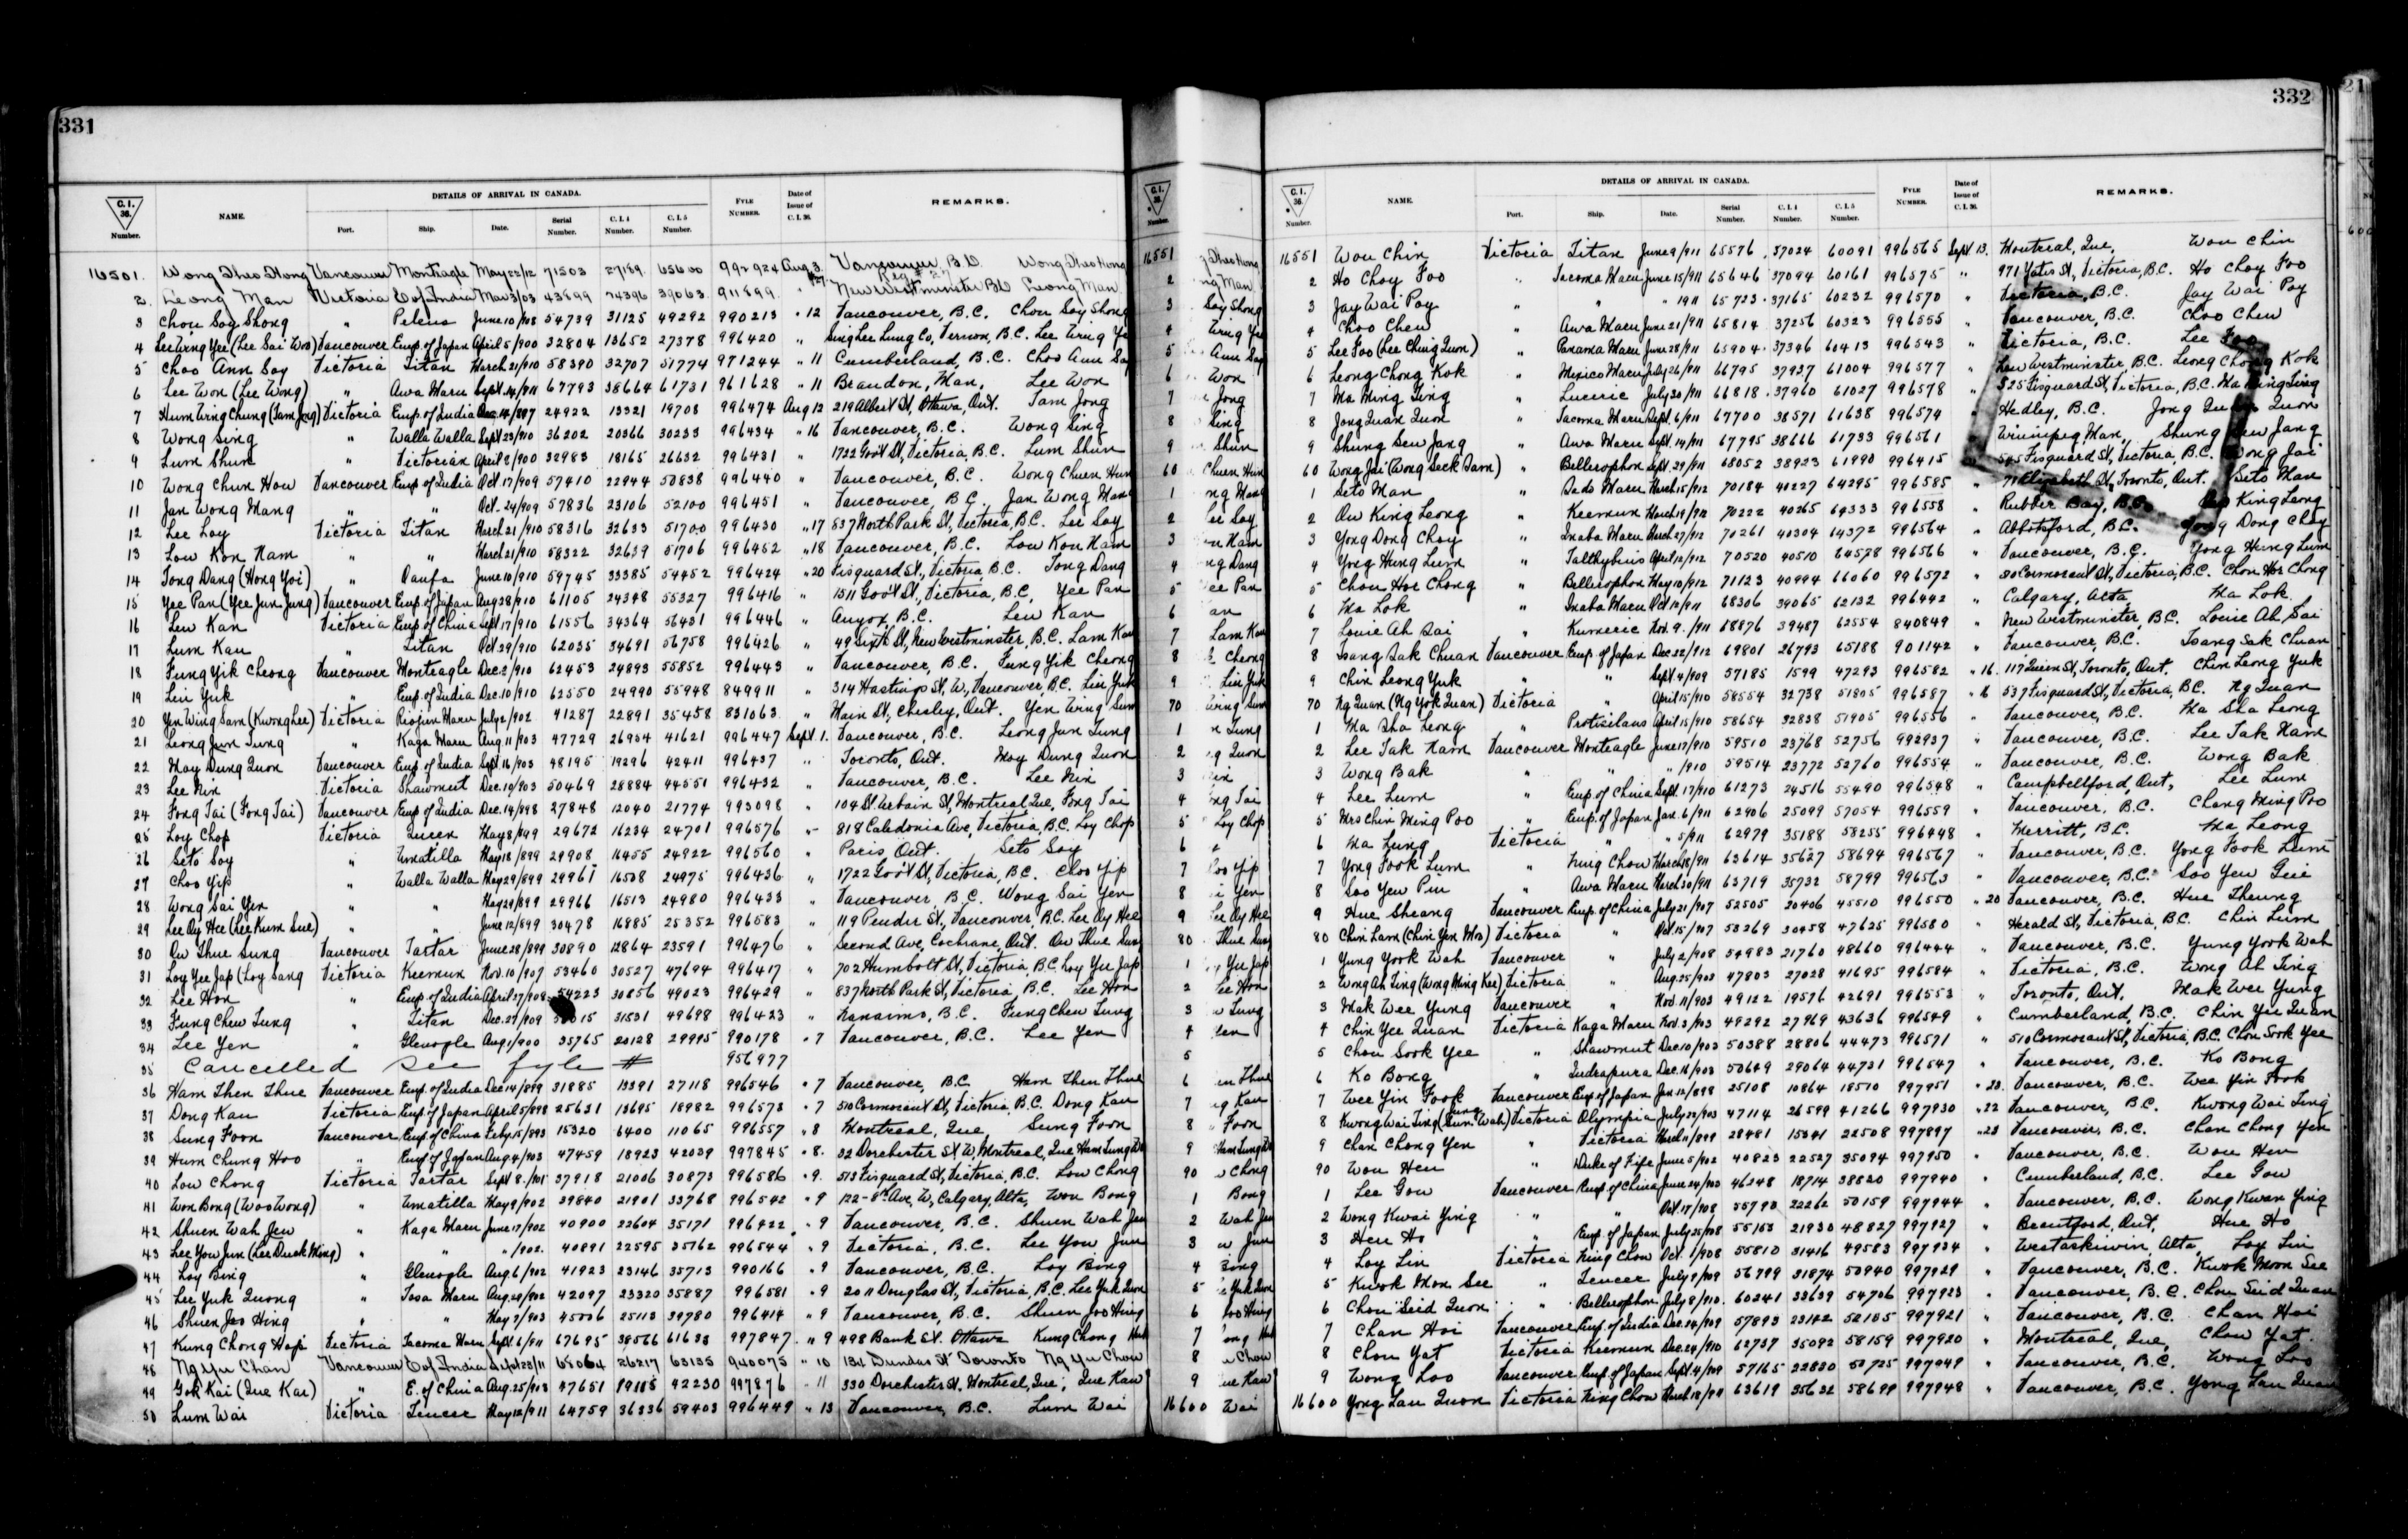 331
C. I. 36. Number. NAME. DETAILS OF ARRIVAL IN CANADA. Port. Ship. Date. Serial Number. C. I. 4 Number. C. I. 5 Number. FYLE NUMBER. Date of Issue of C. I. 36. REMARKS.
16501. Wong Theo Hong Vancouver Monteagle May 22/12 71503 27189 65600 992924 Aug 3. Vancouver, B.C. Wong Theo Hong
2. Leong Man Victoria E of India Mar 3/03 43899 24396 39063 911899 New Westminster B.C. Leong Man
3 Chou Soy Shong " Peleus June 10/908 54739 31125 49292 990213 " 12 Vancouver, B.C. Chou Soy Shong
4 Lee Wing Yee (Lee Sai Woo) Vancouver Emp. of Japan April 5/900 32804 13652 27378 996420 " Sing Lee Lung Co, Vernon, B.C. Lee Wing Ye
5 Choo Ann Soy Victoria Titan March 21/910 58390 32707 51774 971244 " 11 Cumberland, B.C. Choo Ann Soy
6 Lee Won (Lee Wong) " Awa Maru Sept. 14/911 67793 38664 61731 961628 " 11 Brandon, Man. Lee Won
7 Hum Wing Chung (Tam Jong) Victoria Emp. of India Dec. 14/897 24922 13321 19708 996474 Aug 12 219 Albert St, Ottawa, Ont. Tam Jong
8 Wong Sing " Walla Walla Sept 23/910 36202 20366 30233 996434 " 16 Vancouver, B.C. Wong Sing
9 Lum Shun " Victorian April 2/900 32983 18165 26632 996431 " 1722 Gov't St, Victoria, B.C. Lum Shun
10 Wong Chun Hou Vancouver Emp of India Oct 17/909 57410 22944 50838 996440 " Vancouver, B.C. Wong Chuen Hun
11 Jan Wong Mang " " Oct. 24/909 57836 23106 52100 996451 " Vancouver, B.C. Jan Wong Mang
12 Lee Loy Victoria Titan March 21/910 58316 32633 51700 996430 " 17 837 North Park St, Victoria, B.C. Lee Loy
13 Low Kon Ham " " March 21/910 58322 32639 51706 996452 " 18 Vancouver, B.C. Low Kon Ham
14 Tong Dang (Hong Yoi) " Oanfa June 10/910 59745 33385 54452 996424 " 20 Fisguard St., Victoria, B.C. Tong Dang
15 Yee Pan (Yee Jun Jung) Vancouver Emp. of Japan Aug 28/910 61105 24348 55327 996416 " 1511 Gov't St, Victoria, B.C. Yee Pan
16 Lew Kan Victoria Emp of China Sept 17/910 61556 34364 56431 996446 " Anyox, B.C. Lew Kan
17 Lum Kau " Titan Oct 29/910 62035 34691 56758 996426 " 49 Sixth St, New Westminster, B.C. Lam Kau
18 Fung Yik Cheong Vancouver Monteagle Dec. 2/910 62453 24893 55852 996443 " Vancouver, B.C. Fung Yik Cheong
19 Lin Yuk " Emp. of India Dec. 10/910 62550 24990 55948 849911 " 314 Hastings St, W., Vancouver, B.C. Lin Yuk
20 Yen Wing Sam (Kwong Lee) Victoria Riojun Maru July 2/902 41287 22891 35458 831063 " Main St, Chesley, Ont. Yen Wing Sum
21 Leong Jun Tung " Kaga Maru Aug. 11/903 47729 26954 41621 996447 Sept 1. Vancouver, B.C. Leong Jun Tung
22 May Dung Quon Vancouver Emp of India Sept. 16/903 48195 19296 42411 996437 " Toronto, Ont. May Dung Quon
23 Lee Nin Victoria Shawmut Dec. 19/903 50469 28884 44551 996432 " Vancouver, B.C. Lee Nin
24 Fong Tai (Fong Tai) Vancouver Emp. of India Dec. 14/898 27848 12040 21774 993098 " 104 St. Urbain St, Montreal, Que, Fong Tai
25 Loy Chop Victoria Queen May 8/899 29672 16234 24701 996576 " 818 Caledonia Ave, Victoria, B.C. Loy Chop
26 Seto Soy " Umatilla May 18/899 29908 16455 24922 996560 " Paris Ont. Seto Soy
27 Choo Yip " Walla Walla May 29/899 29961 16508 24975 996436 " 1722 Gov't St, Victoria, B.C. Choo Yip
28 Wong Sai Yen " " May 29/899 29966 16513 24980 996433 " Vancouver, B.C. Wong Sai Yen
29 Lee Oy Hee (Lee Kum Sue) " " June 12/899 30478 16885 25352 996583 " 119 Pender St., Vancouver, B.C. Lee Oy Hee
30 Ou Thue Sung Vancouver Tartar June 28/899 30890 12864 23591 996476 " Second Ave, Cochrane, Ont. Ou Thue Sun
31 Loy Yee Jap (Loy Sang Victoria Keemun Nov. 10/907 53460 30527 47694 996417 " 702 Humbolt St, Victoria, B.C. Loy Yee Jap
32 Lee Hon " Emp. of India April 27/908 54223 30856 49023 996429 " 837 North Park St, Victoria, B.C. Lee Hon
33 Fung Chew Tung " Titan Dec. 27/909 15 31531 49698 996423 " Nanaimo, B.C. Fung Chew Tung
34 Lee Yen " Glenogle Aug 1/900 35765 20128 29995 990178 " 7 Vancouver, B.C. Lee Yen
35 Cancelled see fyle # 956977
36 Ham Then Thue Vancouver Emp. of India Dec 14/899 31885 13391 27118 996546 " 7 Vancouver, B.C. Ham Then Thue
37 Dong Kau Victoria Emp. of Japan April 5/898 25631 13695 18982 996573 " 7 510 Cormorant St, Victoria, B.C. Dong Kau
38 Sung Foon Vancouver Emp. of China Feby. 15/893 15320 6400 11065 996557 " 8 Montreal, Que, Sung Foon
39 Hum Chung Hoo " Emp of Japan Aug 4/903 47459 18923 42039 997845 " 8. 32 Dorchester St W, Montreal, Que
40 Low Chong Victoria Tartar Sept 8/901 37918 21006 30873 996586 " 9. 513 Fisguard St, Victoria, B.C. Low Chong
41 Won Bong (Woo Wong) " Umatilla May 9/902 39840 21901 33768 996542 " 9 122-8th Ave, W, Calgary, Alta, Won Bong
42 Shuen Wah Jew " Kaga Maru June 17/902 40900 22604 35171 996422 " 9 Vancouver, B.C. Shuen Wah Jew
43 Lee You Jun (Lee Duck Ming) " " " /902. 40891 22595 35162 996544 " 9 Victoria, B.C. Lee You Jun
44 Loy Bing " Glenogle Aug. 6/902 41923 23146 35713 990166 " 9 Vancouver, B.C. Loy Bing
45 Lee Yuk Quong " Tosa Maru Aug. 20/902 42097 23320 35887 996581 " 9 2011 Douglas St, Victoria, B.C. Lee Yuk Quon
46 Shuen Joo Hing " " May 7/903 45006 25113 39780 996414 " 9 Vancouver, B.C. Shuen Joo Hing
47 Kung Chong Hop Victoria Tacoma Maru Sept. 6/911 67695 38566 61633 997847 " 9 498 Bank St. Ottawa Kung Chong
48 Ng Yu Chan Vancouver E of India Sept 23/11 68064 26217 63135 940075 " 10 134 Dundas St Toronto Ng Yu Chou
49 Gok Kai (Que Kai) " E. of China Aug. 25/903 47651 19115 42230 997876 " 11 330 Dorchester St. Montreal, Que, Que Kau
50 Lum Wai Victoria Teucer May 12/911 64759 36336 59403 996449 " 13 Vancouver, B.C. Lum Wai
332
C. I. 36. Number. NAME. DETAILS OF ARRIVAL IN CANADA. Port. Ship. Date. Serial Number. C. I. 4 Number. C. I. 5 Number. FYLE NUMBER. Date of Issue of C. I. 36. REMARKS.
16551 Wou Chin Victoria Titan June 9/911 65576 37024 60091 996565 Sept. 13. Montreal, Que, Wou Chin
2 Ho Choy Foo " Tacoma Maru June 15/911 65646 37094 60161 996575 " 971 Yates St, Victoria, B.C. Ho Choy Foo
3 Jay Wai Poy " " " 1911 65723 37165 60232 996570 " Victoria, B.C. Jay Wai Poy
4 Choo Chew " Awa Maru June 21/911 65814 37256 60323 996555 " Vancouver, B.C. Choo Chew
5 Lee Foo (Lee Ching Quon) " Panama Maru June 28/911 65904 37346 60413 996543 " Victoria, B.C. Lee Foo
6 Leong Chong Kok " Mexico Maru July 26/911 66795 37937 61004 996577 " New Westminster, B.C. Leong Chong Kok
7 Ma Ming Ting " Luceric July 30/911 66818 37960 61027 996578 " 525 Fisguard St, Victoria, B.C. Ma Ming Ting
8 Jong Quan Quon " Tacoma Maru Sept. 6/911 67700 38571 61638 996574 " Hedley, B.C. Jong Quan Quon
9 Shung Sew Jang " Awa Maru Sept. 14/911 67795 38666 61733 996561 Winnipeg, Man, Shung Sew Jang
60 Wong Jai (Wong Seck Tam) " Bellerophon Sept. 29/911 68052 38923 61990 996415 " 545 Fisguard St, Victoria, B.C. Wong Jai
1 Seto Man " Sado Maru March 15/912 70184 40227 64295 996585 " 71 Elizabeth St, Toronto, Ont. Seto Man
2 Ou King Leong " Keemun March 19/912 70222 40265 64333 996558 " Rubber Bay, B.C. Ou King Leong
3 Yong Dong Choy " Inaba Maru March 27/912 70261 40304 64372 996564 " Abbotsford, B.C. Yong Dong Choy
4 Yong Hung Lum " Talthybius April 12/912 70520 40510 64578 996566 " Vancouver, B.C. Yong Hung Lum
5 Chou Hor Chong " Bellerophon May 10/912 71123 40994 66060 996572 " 20 Cormorant St, Victoria, B.C. Chou Hor Chong
6 Ma Lok " Inaba Maru Oct 12/911 68306 39065 62132 996442 " Calgary, Alta Ma Lok
7 Louie Ah Sai " Kumeric Nov. 9./911 68876 39487 62554 840849 " New Westminster, B.C. Louie Ah Sai
8 Tsang Sak Chuan Vancouver Emp. of Japan Dec 22/912 69801 26793 65188 901142 " Vancouver, B.C. Tsang Sak Chuan
9 Chin Leong Yuk " " Sept. 4/909 57185 1599 47293 996582 " 16. 117 Queen St, Toronto, Ont. Chin Leong Yuk
70 Ng Quan (Ng Yok Quan) Victoria " April 15/910 58554 32738 51805 996587 " 16 537 Fisguard St, Victoria, B.C. Ng Quan
1 Ma Sha Leong " Protisilaus April 15/910 58654 32838 51905 996556 " Vancouver, B.C. Ma Sha Leong
2 Lee Tak Ham Vancouver Monteagle June 17/910 59510 23768 52756 992937 " Vancouver, B.C. Lee Tak Ham
3 Wong Bak " " " /910 59514 23772 52760 996554 " Vancouver, B.C. Wong Bak
4 Lee Lum " Emp. of China Sept. 17/910 61273 24516 55490 996548 " Campbellford, Ont, Lee Lum
5 Mrs Chin Ming Poo " Emp. of Japan Jan. 6/911 62406 25099 57054 996559 " Vancouver, B.C. Chong Ming Poo
6 Ma Lung Victoria " " 5/911 62979 35188 58255 996448 " Merritt, B.C. Ma Leong
7 Yong Fook Lum " Ning Chow March 18/911 63614 35627 58694 996567 " Vancouver, B.C. Yong Fook Lum
8 Soo Yew Pin " Awa Maru March 30/911 63719 35732 58799 996563 " Vancouver, B.C. Soo Yew Guie
9 Hue Sheang Vancouver Emp. of China July 21/907 52505 20406 45510 996550 " 20 Vancouver, B.C. Hue Sheung
80 Chin Lam (Chin Yen Moo) Victoria " Oct. 15/907 53269 30458 47625 996580 " Herald St, Victoria, B.C. Chin Lum
1 Yung Yook Wah Vancouver " July 2/908 54983 21760 48660 996444 " Vancouver, B.C. Yung Yook Wah
2 Wong Ah Ting (Wong Ming Kee) Victoria " Aug. 25/903 47803 27028 41695 996584 " Victoria, B.C. Wong Ah Ting
3 Mak Wee Yung Vancouver " Nov. 11/903 49122 19576 42691 996553 " Toronto, Ont. Mak Wee Yung
4 Chin Yee Quan Victoria Kaga Maru Nov. 3/903 49292 27969 43636 996549 " Cumberland, B.C. Chin Yee Quan
5 Chou Sook Yee " Shawmut Dec. 10/903 50388 28806 44473 996571 " 510 Cormorant St, Victoria, B.C. Chou Sook Yee
6 Ko Bong " Indrapura Dec. 16/903 50649 29064 44731 996547 " Vancouver, B.C. Ko Bong
7 Wee Yin Fook Vancouver Emp. of Japan Jan 12/898 25108 10864 18510 997951 " 20. Vancouver, B.C. Wee Yin Fook
8 Kwong Wai Ting (Sung Sun Wah) Victoria Olympia July 22/903 47114 26599 41266 997930 " 22 Vancouver, B.C. Kwong Wai Ting
9 Chan Chong Yen " Victoria March 11/899 28481 15341 22508 997897 " 23 Vancouver, B.C. Chan Chong Yen
90 Wou Hen " Duke of Fife June 5/902 40823 22527 35094 997950 " Vancouver, B.C. Wou Hen
1 Lee Gow Vancouver Emp. of China June 24/903 46248 18714 38820 997940 " Cumberland, B.C. Lee Gow
2 Wong Kwai Ying " " Oct. 17/908 55790 22262 50159 997944 " Vancouver, B.C. Wong Kwan Ying
3 Heu Ho " Emp. of Japan July 25/908 55153 21930 48827 997927 " Brantford, Ont, Hue Ho
4 Loy Lin Victoria Ning Chow Oct. 1/908 55810 31416 49583 997934 " Westaskiwin, Alta, Loy Lin
5 Kwok Mon See " Teucer July 9/909 56799 31874 50940 997929 " Vancouver, B.C. Kwok Moon See
6 Chou Seid Quon " Bellerophon July 8/910. 60241 33639 54706 997923 " Vancouver, B.C. Chou Seid Quan
7 Chan Hoi Vancouver Emp. of India Dec. 24/909 57893 23122 52105 997921 " Vancouver, B.C. Chan Hoi
8 Chou Yat Victoria Keemun Dec. 24/910 62737 35092 58159 997920 " Montreal, Que, Chou Yat
9 Wong Loo Vancouver Emp. of Japan Sept. 4/909 57165 22820 50725 997949 " Vancouver, B.C. Wong Loo
16600 Yong Lau Quon Victoria Ning Chow March 18/911 63619 35632 58699 997948 " Vancouver, B.C. Yong Lau Quan